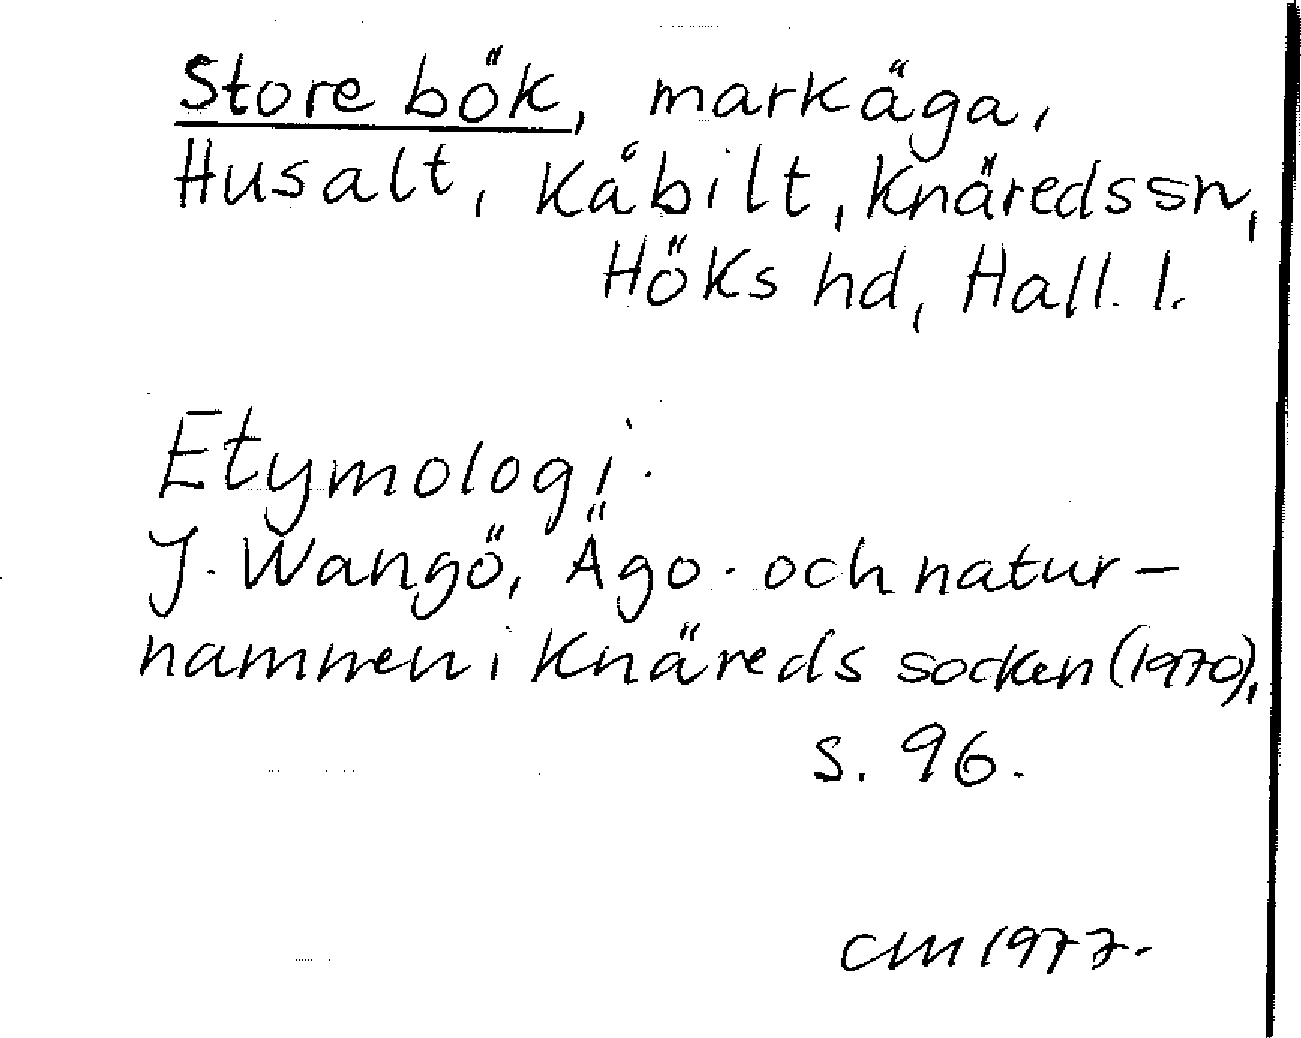 Store bök, markäga,
Husalt, Kåbilt, Knäreds sn,
Höks hd, Hall. l.
Etymologi.
J. Wangö, Ägo- och natur-
namnen i Knäreds socken (1970),
s. 96.
CM 1977.